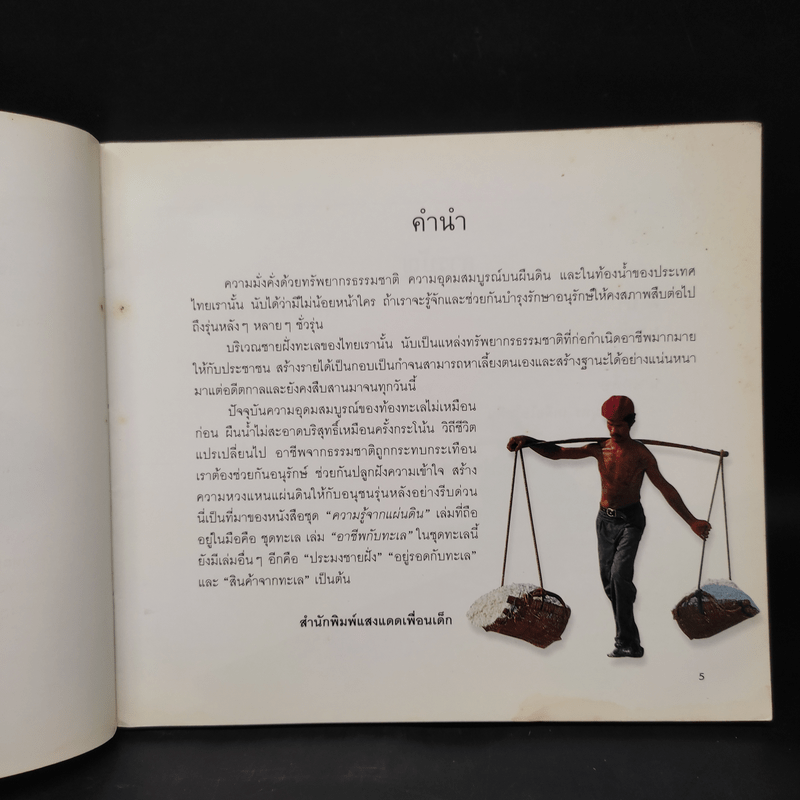 คำนำ
ความมั่งคั่งด้วยทรัพยากรธรรมชาติ ความอุดมสมบูรณ์บนผืนดิน และในท้องน้ำของประเทศ
ไทยเรานั้น นับได้ว่ามีไม่น้อยหน้าใคร ถ้าเราจะรู้จักและช่วยกันบำรุงรักษาอนุรักษ์ให้คงสภาพสืบต่อไป
ถึงรุ่นหลังๆ หลายๆ ชั่วรุ่น
บริเวณชายฝั่งทะเลของไทยเรานั้น นับเป็นแหล่งทรัพยากรธรรมชาติที่ก่อกำเนิดอาชีพมากมาย
ให้กับประชาชน สร้างรายได้เป็นกอบเป็นกำจนสามารถหาเลี้ยงตนเองและสร้างฐานะได้อย่างแน่นหนา
มาแต่อดีตกาลและยังคงสืบสานมาจนทุกวันนี้
ปัจจุบันความอุดมสมบูรณ์ของท้องทะเลไม่เหมือน
ก่อน ผืนน้ำไม่สะอาดบริสุทธิ์เหมือนครั้งกระโน้น วิถีชีวิต
แปรเปลี่ยนไป อาชีพจากธรรมชาติถูกกระทบกระเทือน
เราต้องช่วยกันอนุรักษ์ ช่วยกันปลูกฝังความเข้าใจ สร้าง
ความหวงแหนแผ่นดินให้กับอนุชนรุ่นหลังอย่างรีบด่วน
นี่เป็นที่มาของหนังสือชุด "ความรู้จากแผ่นดิน" เล่มที่ถือ
อยู่ในมือคือ ชุดทะเล เล่ม "อาชีพกับทะเล" ในชุดทะเลนี้
ยังมีเล่มอื่นๆ อีกคือ "ประมงชายฝั่ง" "อยู่รอดกับทะเล"
และ "สินค้าจากทะเล" เป็นต้น
สำนักพิมพ์แสงแดดเพื่อนเด็ก
5